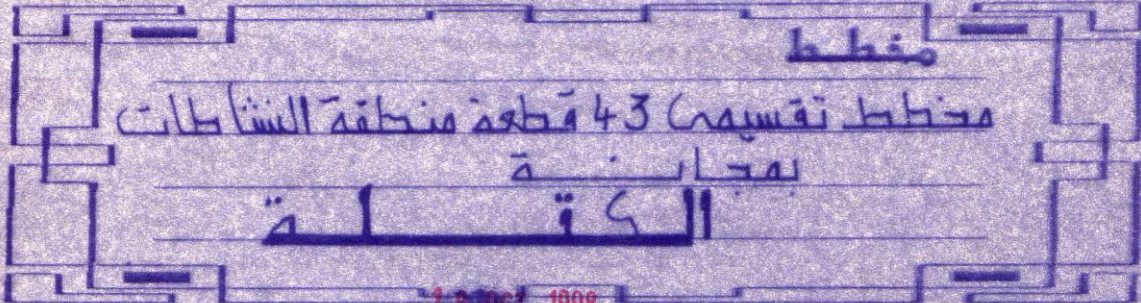 مخطط
مخطط تقسيمي 43 قطعة منطقة النشاطات
بمجانــــة
الكتـــلـــة